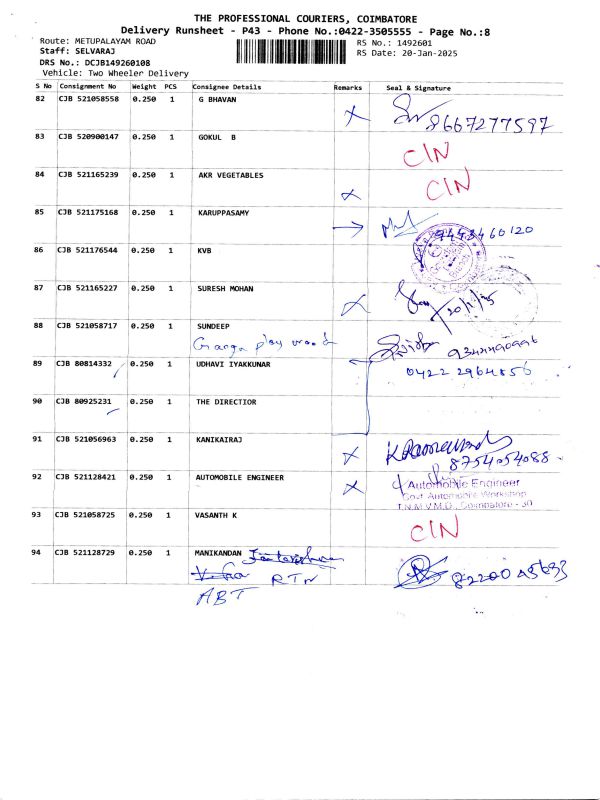 THE PROFESSIONAL COURIERS, COIMBATORE
Delivery Runsheet - P43 - Phone No.:0422-3505555 - Page No.:8
Route: METUPALAYAM ROAD RS No.: 1492601
Staff: SELVARAJ RS Date: 20-Jan-2025
DRS No.: DCJB149260108
Vehicle: Two Wheeler Delivery
S No Consignment No Weight PCS Consignee Details Remarks Seal & Signature
82 CJB 521058558 0.250 1 G BHAVAN
8667277597
83 CJB 520900147 0.250 1 GOKUL B
C/N
84 CJB 521165239 0.250 1 AKR VEGETABLES C/N
85 CJB 521175168 0.250 1 KARUPPASAMY
9443460120
86 CJB 521176544 0.250 1 KVB
87 CJB 521165227 0.250 1 SURESH MOHAN
20/1/25
88 CJB 521058717 0.250 1 SUNDEEP
Ganga play wood
89 CJB 80814332 0.250 1 UDHAVI IYAKKUNAR
04222964856
90 CJB 80925231 0.250 1 THE DIRECTIOR
91 CJB 521056963 0.250 1 KANIKAIRAJ
8754054088
92 CJB 521128421 0.250 1 AUTOMOBILE ENGINEER Automobile Engineer
Govt Automobile Workshop
T.N.M.V.M.D., Coimbatore - 30
93 CJB 521058725 0.250 1 VASANTH K
C/N
94 CJB 521128729 0.250 1 MANIKANDAN
RTN
ABT